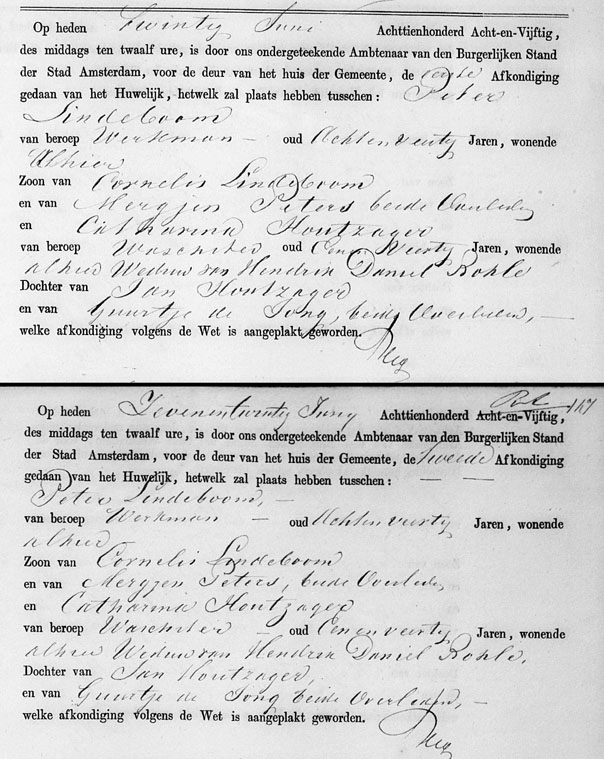 Op heden Twintig Juni Achttienhonderd Acht-en-Vijftig,
des middags ten twaalf ure, is door ons ondergeteekende Ambtenaar van den Burgerlijken Stand
der Stad Amsterdam, voor de deur van het huis der Gemeente, de eerste Afkondiging
gedaan van het Huwelijk, hetwelk zal plaats hebben tusschen: Peter
Lindeboom
van beroep Werkman — oud Achtenveertig Jaren, wonende
alhier
Zoon van Cornelis Lindeboom
en van Mergjen Peters beide Overleden
en Catharina Houtzager
van beroep Waschster oud Eenenveertig Jaren, wonende
alhier Weduw van Hendrik Daniel Rohle
Dochter van Jan Houtzager
en van Guurtje de Jong, beide Overleden, —
welke afkondiging volgens de Wet is aangeplakt geworden.
147
Op heden Zevenentwintig Juny Achttienhonderd Acht-en-Vijftig,
des middags ten twaalf ure, is door ons ondergeteekende Ambtenaar van den Burgerlijken Stand
der Stad Amsterdam, voor de deur van het huis der Gemeente, de tweede Afkondiging
gedaan van het Huwelijk, hetwelk zal plaats hebben tusschen: — —
Peter Lindeboom, —
van beroep Werkman — oud Achtenveertig Jaren, wonende
alhier
Zoon van Cornelis Lindeboom
en van Mergjen Peters, beide Overleden
en Catharina Houtzager
van beroep Waschster — oud Eenenveertig Jaren, wonende
alhier Weduw van Hendrik Daniel Rohle,
Dochter van Jan Houtzager,
en van Guurtje de Jong beide Overleden, —
welke afkondiging volgens de Wet is aangeplakt geworden.